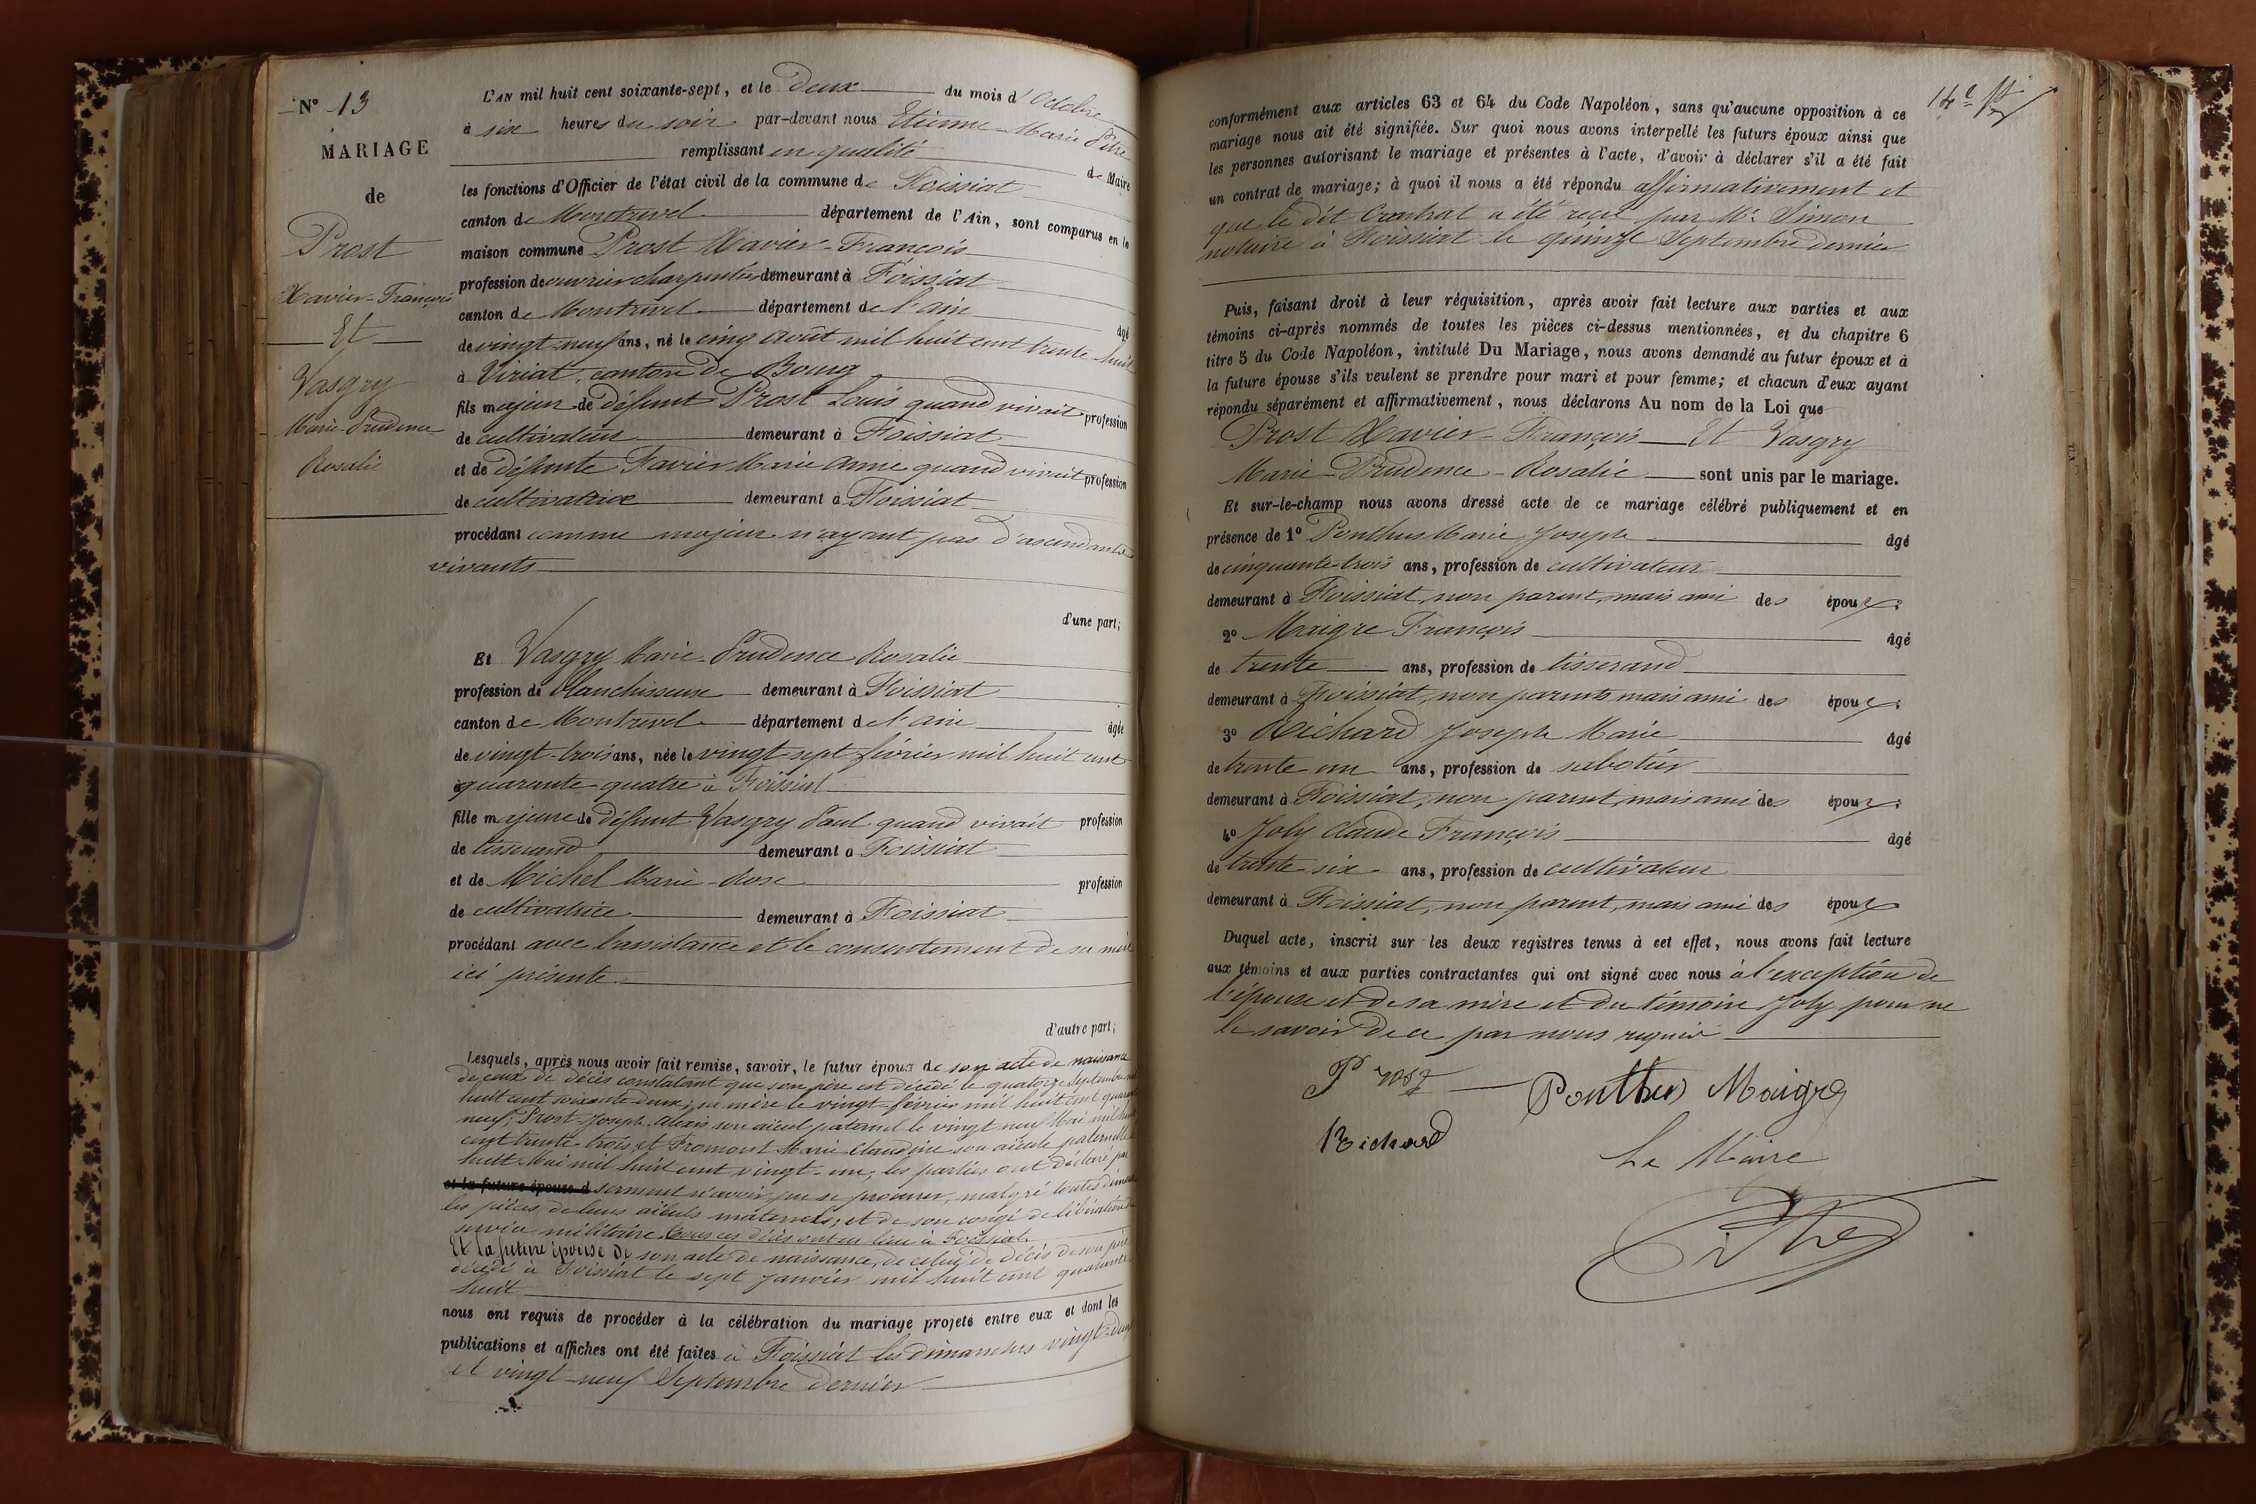 N° 13
MARIAGE
de
Prost
Xavier-François
Et
Vasgry
Marie-Prudence
Rosalie
L'AN mil huit cent soixante-sept, et le Deux du mois d'Octobre
à six heures du soir par-devant nous Etienne-Marie Pitre
remplissant en qualité de Maire
les fonctions d'Officier de l'état civil de la commune de Foissiat
canton de Montrevel département de l'Ain, sont comparus en la
maison commune Prost Xavier-François
profession de ouvrier charpentier demeurant à Foissiat
canton de Montrevel département de l'ain âgé
de vingt neuf ans, né le cinq août mil huit cent trente-huit
à Viriat, canton de Bourg
fils majeur de défunt Prost Louis quand vivait profession
de cultivateur demeurant à Foissiat
et de défunte Favier Marie Anne quand vivait profession
de cultivatrice demeurant à Foissiat
procédant comme majeur n'ayant pas d'ascendants
vivants
d'une part;
Et Vasgry Marie Prudence Rosalie
profession de blanchisseuse demeurant à Foissiat
canton de Montrevel département de l'ain âgée
de vingt-trois ans, née le vingt sept février mil huit cent
quarante quatre à Foissiat
fille majeure de défunt Vasgry Paul quand vivait profession
de tisserand demeurant à Foissiat
et de Michel Marie-Rose profession
de cultivatrice demeurant à Foissiat
procédant avec l'assistance et le consentement de sa mère
ici présente
d'autre part;
Lesquels, après nous avoir fait remise, savoir, le futur époux de son acte de naissance
de ceux de décès constatant que son père est décédé le quatorze Septembre mil
huit cent soixante deux; sa mère le vingt février mil huit cent quarante
neuf; Prost Joseph Alexis son aïeul paternel le vingt neuf Mai mil huit
cent trente trois et Fromont Marie Claudine son aïeule paternelle
huit Mai mil huit cent vingt-un; les parties ont déclaré par
et la future épouse d serment n'avoir pu se procurer, malgré toutes
les pièces de leurs aïeuls maternels; et de son congé de libération du
service militaire. tous ces décès ont eu lieu à Foissiat.
Et la future épouse de son acte de naissance, de celui de décès de son père
décédé à Foissiat le sept Janvier mil huit cent quarante
huit
nous ont requis de procéder à la célébration du mariage projeté entre eux et dont les
publications et affiches ont été faites à Foissiat les dimanches vingt-deux
et vingt-neuf Septembre dernier
14e
conformément aux articles 63 et 64 du Code Napoléon, sans qu'aucune opposition à ce
mariage nous ait été signifiée. Sur quoi nous avons interpellé les futurs époux ainsi que
les personnes autorisant le mariage et présentes à l'acte, d'avoir à déclarer s'il a été fait
un contrat de mariage; à quoi il nous a été répondu affirmativement et
que le dit Contrat a été reçu par Me Simon
notaire à Foissiat le quinze Septembre dernier
Puis, faisant droit à leur réquisition, après avoir fait lecture aux parties et aux
témoins ci-après nommés de toutes les pièces ci-dessus mentionnées, et du chapitre 6
titre 5 du Code Napoléon, intitulé Du Mariage, nous avons demandé au futur époux et à
la future épouse s'ils veulent se prendre pour mari et pour femme; et chacun d'eux ayant
répondu séparément et affirmativement, nous déclarons Au nom de la Loi que
Prost Xavier-François Et Vasgry
Marie-Prudence-Rosalie sont unis par le mariage.
Et sur-le-champ nous avons dressé acte de ce mariage célébré publiquement et en
présence de 1° Ponthus Marie Joseph âgé
de cinquante-trois ans, profession de cultivateur
demeurant à Foissiat, non parent, mais ami des époux;
2° Maigre François âgé
de trente ans, profession de tisserand
demeurant à Foissiat, non parents mais ami des époux;
3° Richard Joseph Marie âgé
de trente-un ans, profession de sabotier
demeurant à Foissiat, non parent, mais ami des époux;
4° Joly Claude François âgé
de trente-six ans, profession de cultivateur
demeurant à Foissiat, non parent, mais ami des époux
Duquel acte, inscrit sur les deux registres tenus à cet effet, nous avons fait lecture
aux témoins et aux parties contractantes qui ont signé avec nous à l'exception de
l'épouse et de sa mère et du témoin Joly pour ne
le savoir de ce par nous requis
Prost Ponthus Maigre
Richard
Le Maire
Pitre